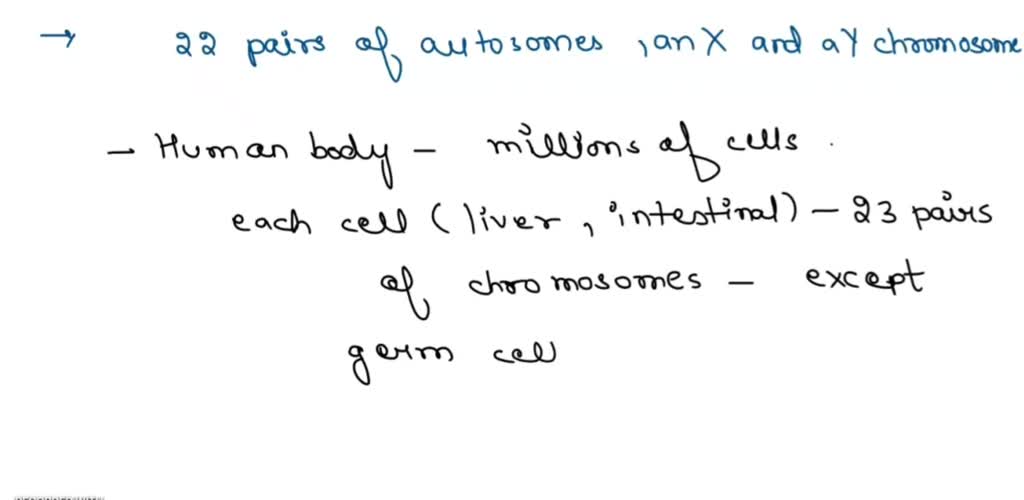 → 22 pairs of autosomes, an X and a Y chromosome
- Human body - millions of cells.
each cell (liver, intestinal) - 23 pairs
of chromosomes - except
germ cell